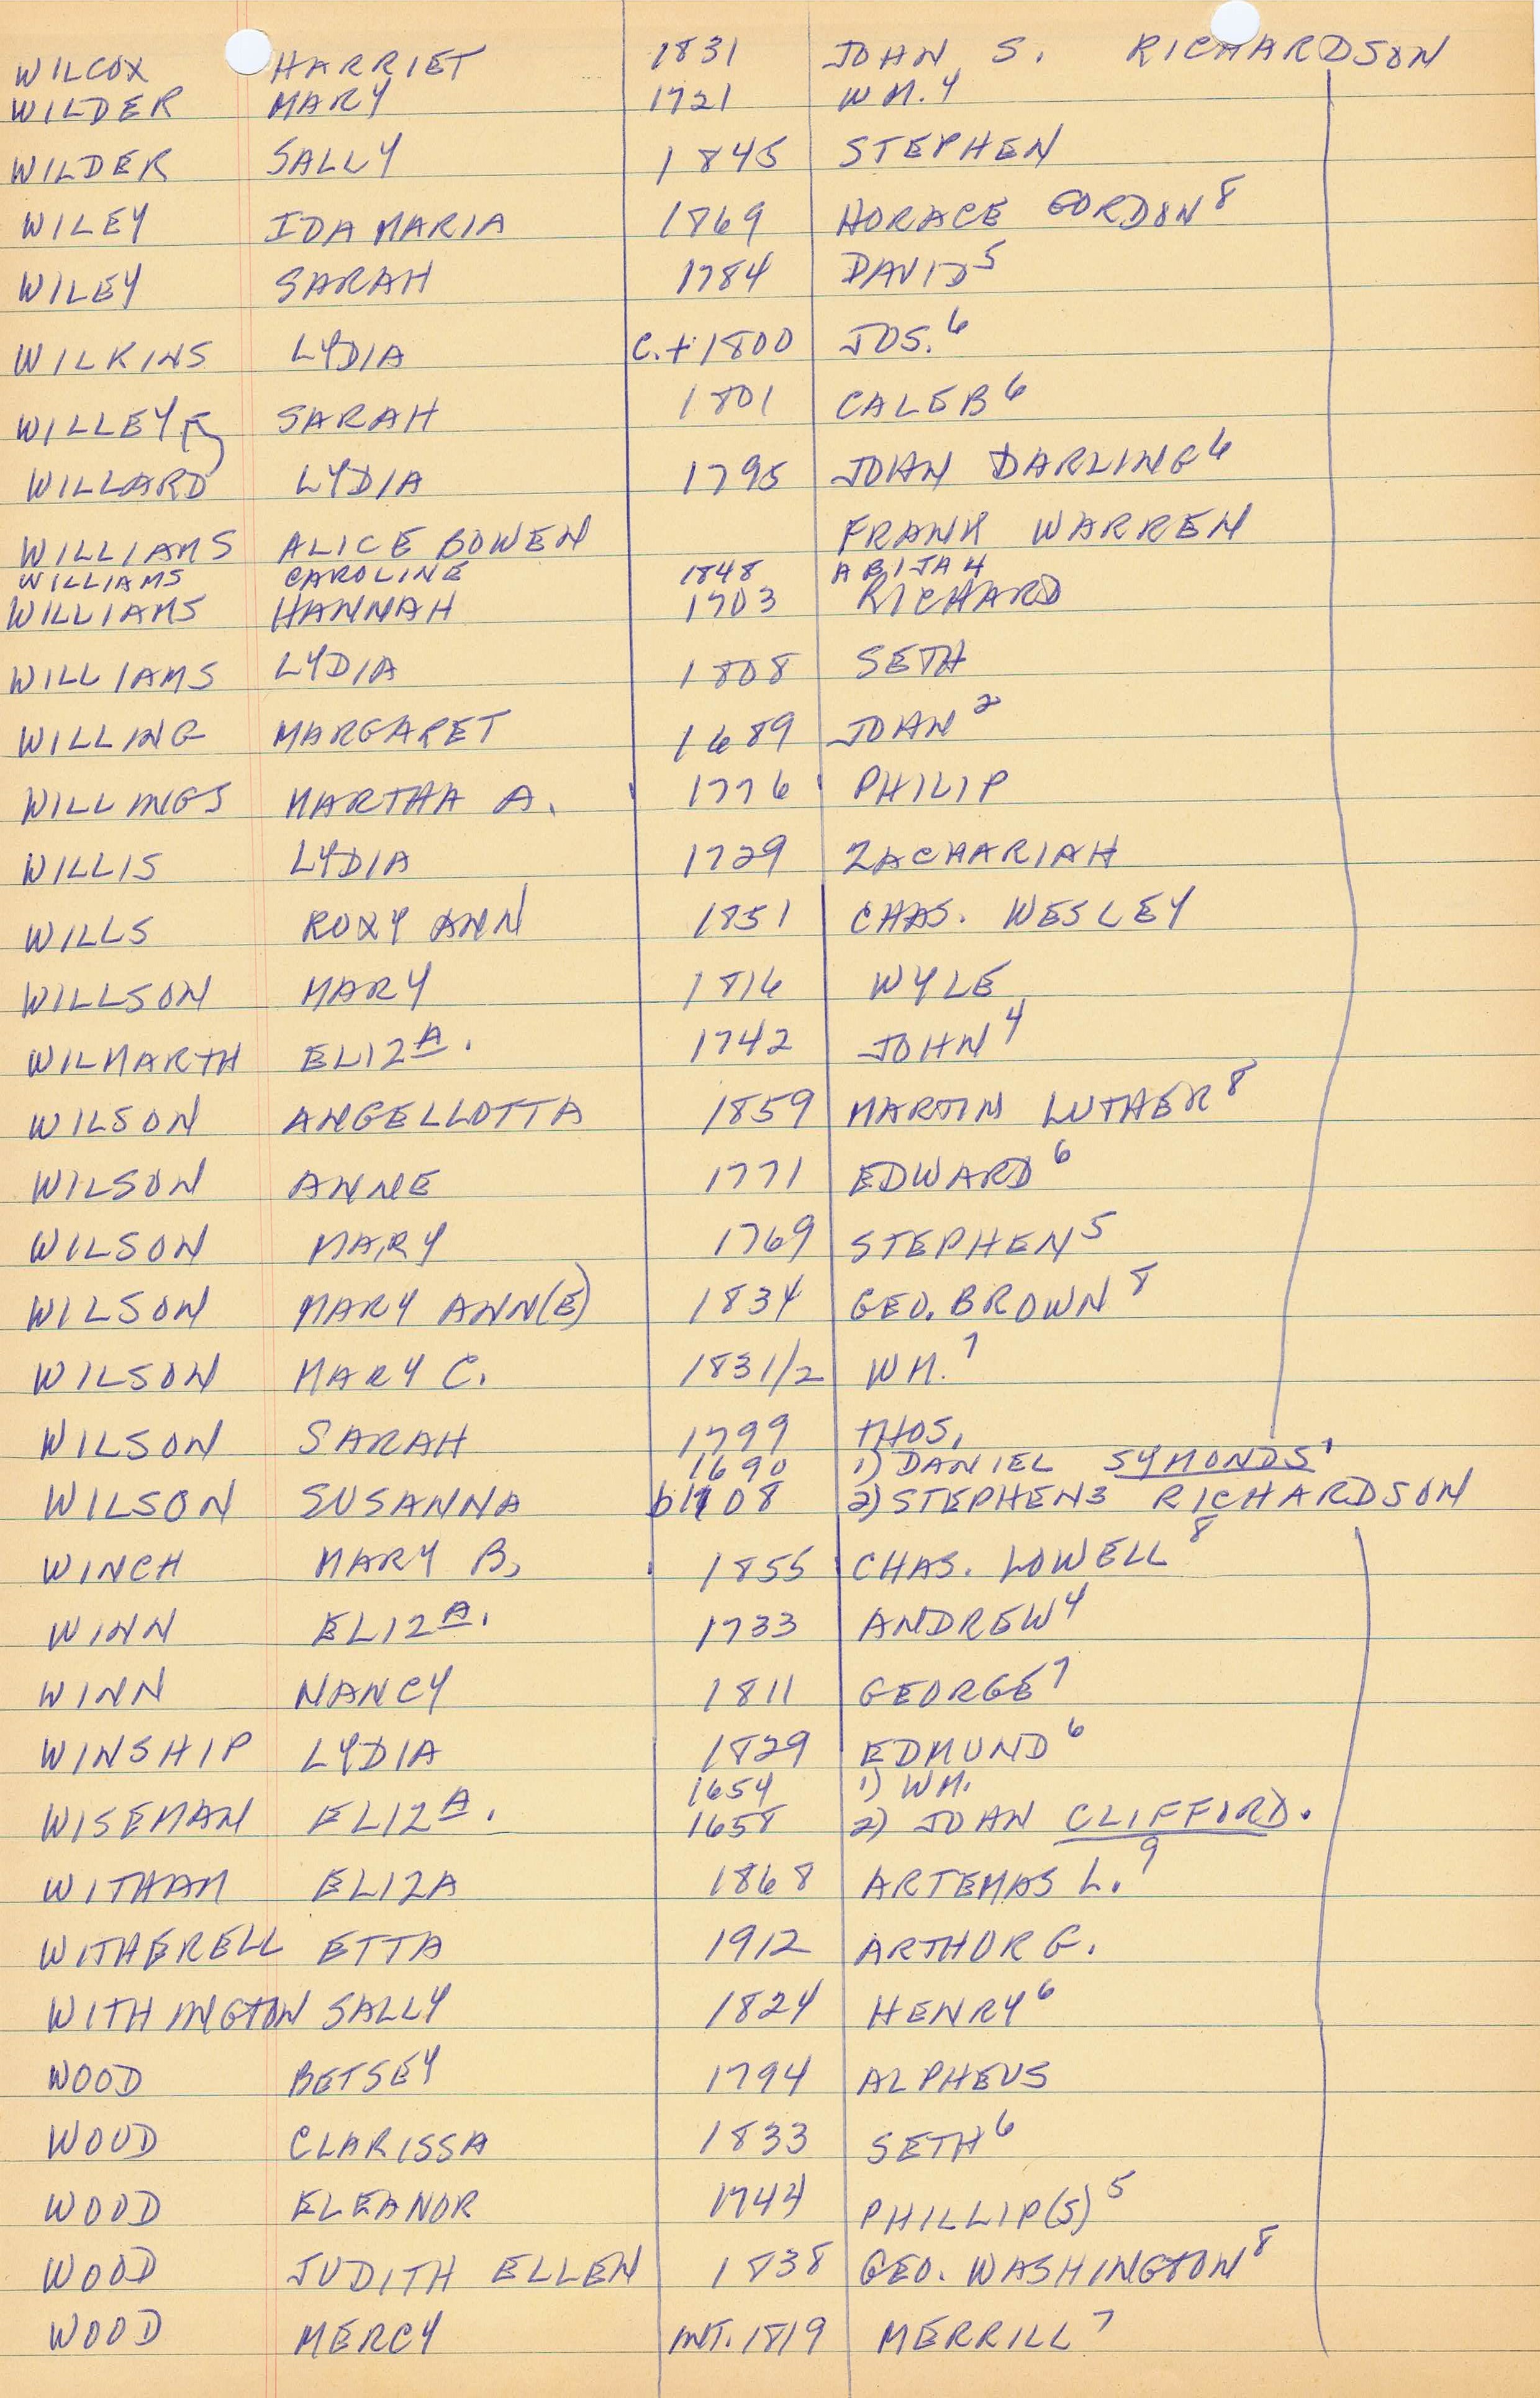 WILCOX HARRIET 1831 JOHN S. RICHARDSON
WILDER MARY 1721 WM.4
WILDER SALLY 1845 STEPHEN
WILEY IDA MARIA 1869 HORACE GORDON8
WILEY SARAH 1784 DAVID5
WILKINS LYDIA C.+1800 JOS.6
WILLEY SARAH 1801 CALEB6
WILLARD LYDIA 1795 JOHN DARLING6
WILLIAMS ALICE BOWEN FRANK WARREN
WILLIAMS CAROLINE 1848 ABIJAH
WILLIAMS HANNAH 1703 RICHARD
WILLIAMS LYDIA 1808 SETH
WILLING MARGARET 1689 JOHN2
WILLINGS MARTHA A. 1776 PHILIP
WILLIS LYDIA 1729 ZACHARIAH
WILLS ROXY ANN 1851 CHAS. WESLEY
WILLSON MARY 1816 WYLE
WILMARTH ELIZA. 1742 JOHN4
WILSON ANGELLOTTA 1859 MARTIN LUTHER8
WILSON ANNE 1771 EDWARD6
WILSON MARY 1769 STEPHEN5
WILSON MARY ANN(E) 1834 GEO. BROWN8
WILSON MARY C. 1831/2 WM.7
WILSON SARAH 1799 THOS.
1690 1) DANIEL SYMONDS1
WILSON SUSANNA b1708 2) STEPHEN3 RICHARDSON
WINCH MARY B. 1855 CHAS. LOWELL8
WINN ELIZA. 1733 ANDREW4
WINN NANCY 1811 GEORGE7
WINSHIP LYDIA 1829 EDMUND6
1654 1) WM.
WISEMAN ELIZA. 1658 2) JOHN CLIFFORD.
WITHAM ELIZA 1868 ARTEMAS L.9
WITHERELL ETTA 1912 ARTHUR G.
WITHINGTON SALLY 1824 HENRY6
WOOD BETSEY 1794 ALPHEUS
WOOD CLARISSA 1833 SETH6
WOOD ELEANOR 1744 PHILLIP(S)5
WOOD JUDITH ELLEN 1838 GEO. WASHINGTON8
WOOD MERCY INT. 1819 MERRILL7